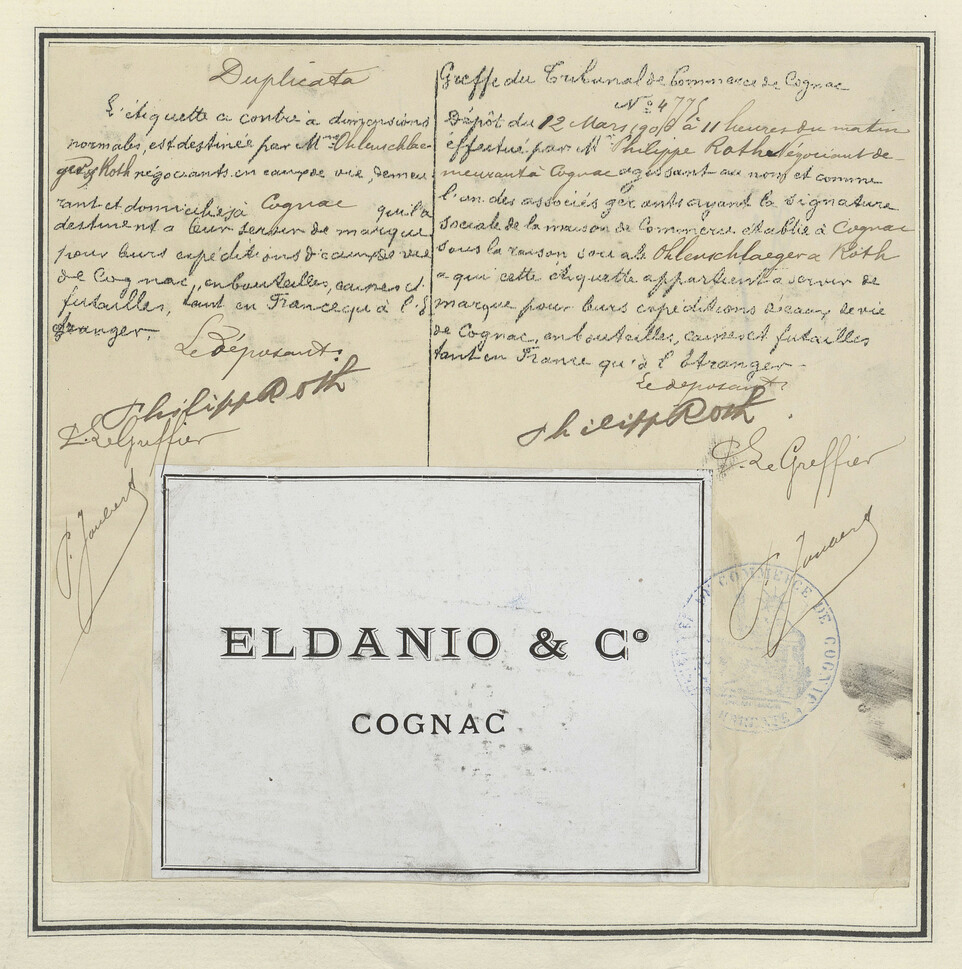 Duplicata
L'étiquette ci contre à dimensions
normales, est destinée par Mrs Ohlenschlae-
ger & Roth négociants en eaux de vie, demeu
rant et domiciliés à Cognac qu'ils
destinent a leur servir de marque
pour leurs expéditions d'eaux de vie
de Cognac, en bouteilles, caisses et
futailles, tant en France qu'à l'É
tranger.
Le déposant:
Philipp Roth
P. Le Greffier
P. Joubert
Greffe du Tribunal de Commerce de Cognac
No 4775
Dépôt du 12 Mars 1906 à 11 heures du matin
effectué par Mr Philippe Roth Négociant de-
meurant à Cognac agissant au nom et comme
l'un des associés gérants ayant la signature
sociale de la maison de Commerce établie à Cognac
sous la raison sociale Ohlenschlaeger & Roth
a qui cette étiquette appartient a servir de
marque pour leurs expéditions d'eaux de vie
de Cognac, en bouteilles, caisses et futailles
tant en France qu'à l'Etranger.
Le déposant:
Philipp Roth
P. Le Greffier
P. Joubert
DE COMMERCE DE COGNAC
ELDANIO & Co
COGNAC